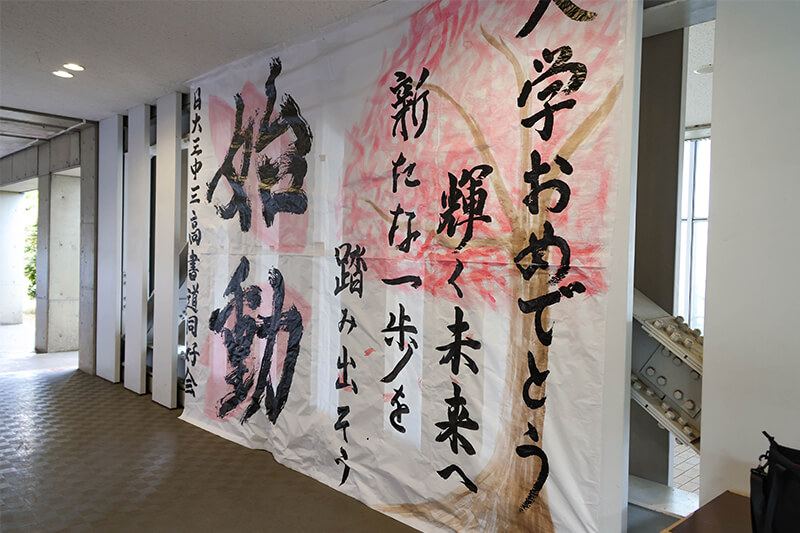 入学おめでとう
輝く未来へ
新たな一歩を
踏み出そう
始動
日大三中三高書道同好会